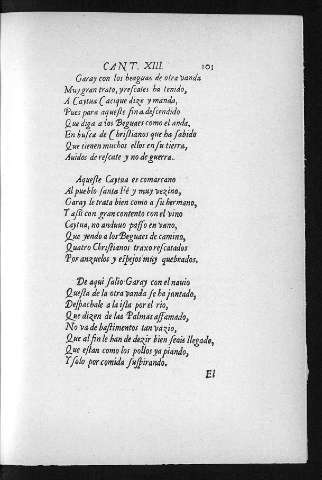 CANT. XIII. 103
Garay con los beguaes de otra vanda
Muy gran trato, y rescates ha tenido,
A Caytua Cacique dize y manda,
Pues para aqueste fin a descendido
Que diga a los Beguaes como el anda,
En busca de Christianos que ha sabido
Que tienen muchos ellos en su tierra,
Auidos de rescate y no de guerra.
Aqueste Caytua es comarcano
Al pueblo santa Fé y muy vezino,
Garay le trata bien como a su hermano,
Y assi con gran contento con el vino
Caytua, no anduuo posso en vano,
Que yendo a los Beguaes de camino,
Quatro Christianos traxo rescatados
Por anzuelos y espejos muy quebrados.
De aqui salio Garay con el nauio
Questa de la otra vanda se ha juntado,
Despachale a la isla por el rio,
Que dizen de las Palmas affamado,
No va de bastimentos tan vazio,
Que al fin le han de dezir bien seais llegado,
Que estan como los pollos ya piando,
Y solo por comida suspirando.
El